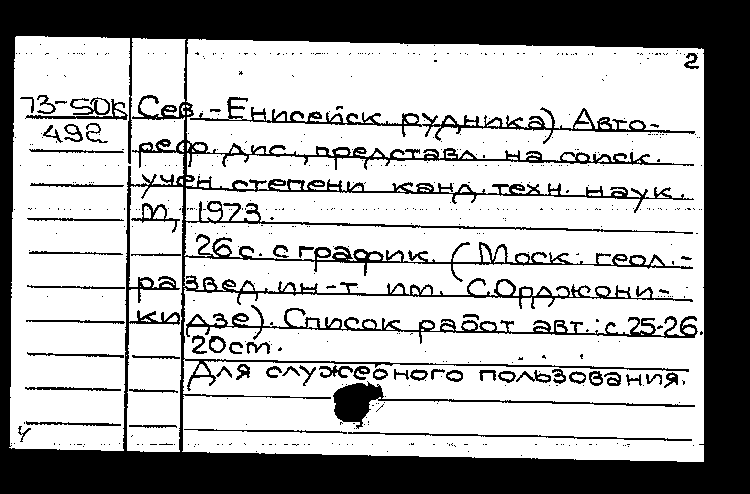 2
73-50К Сев.-Енисейск. рудника). Авто-
498 реф. дис., представл. на соиск.
учен. степени канд. техн. наук.
М, 1973.
26 с. с график. (Моск. геол.-
развед. ин-т им. С.Орджони-
кидзе). Список работ авт.: с. 25-26.
20 см.
Для служебного пользования.
4